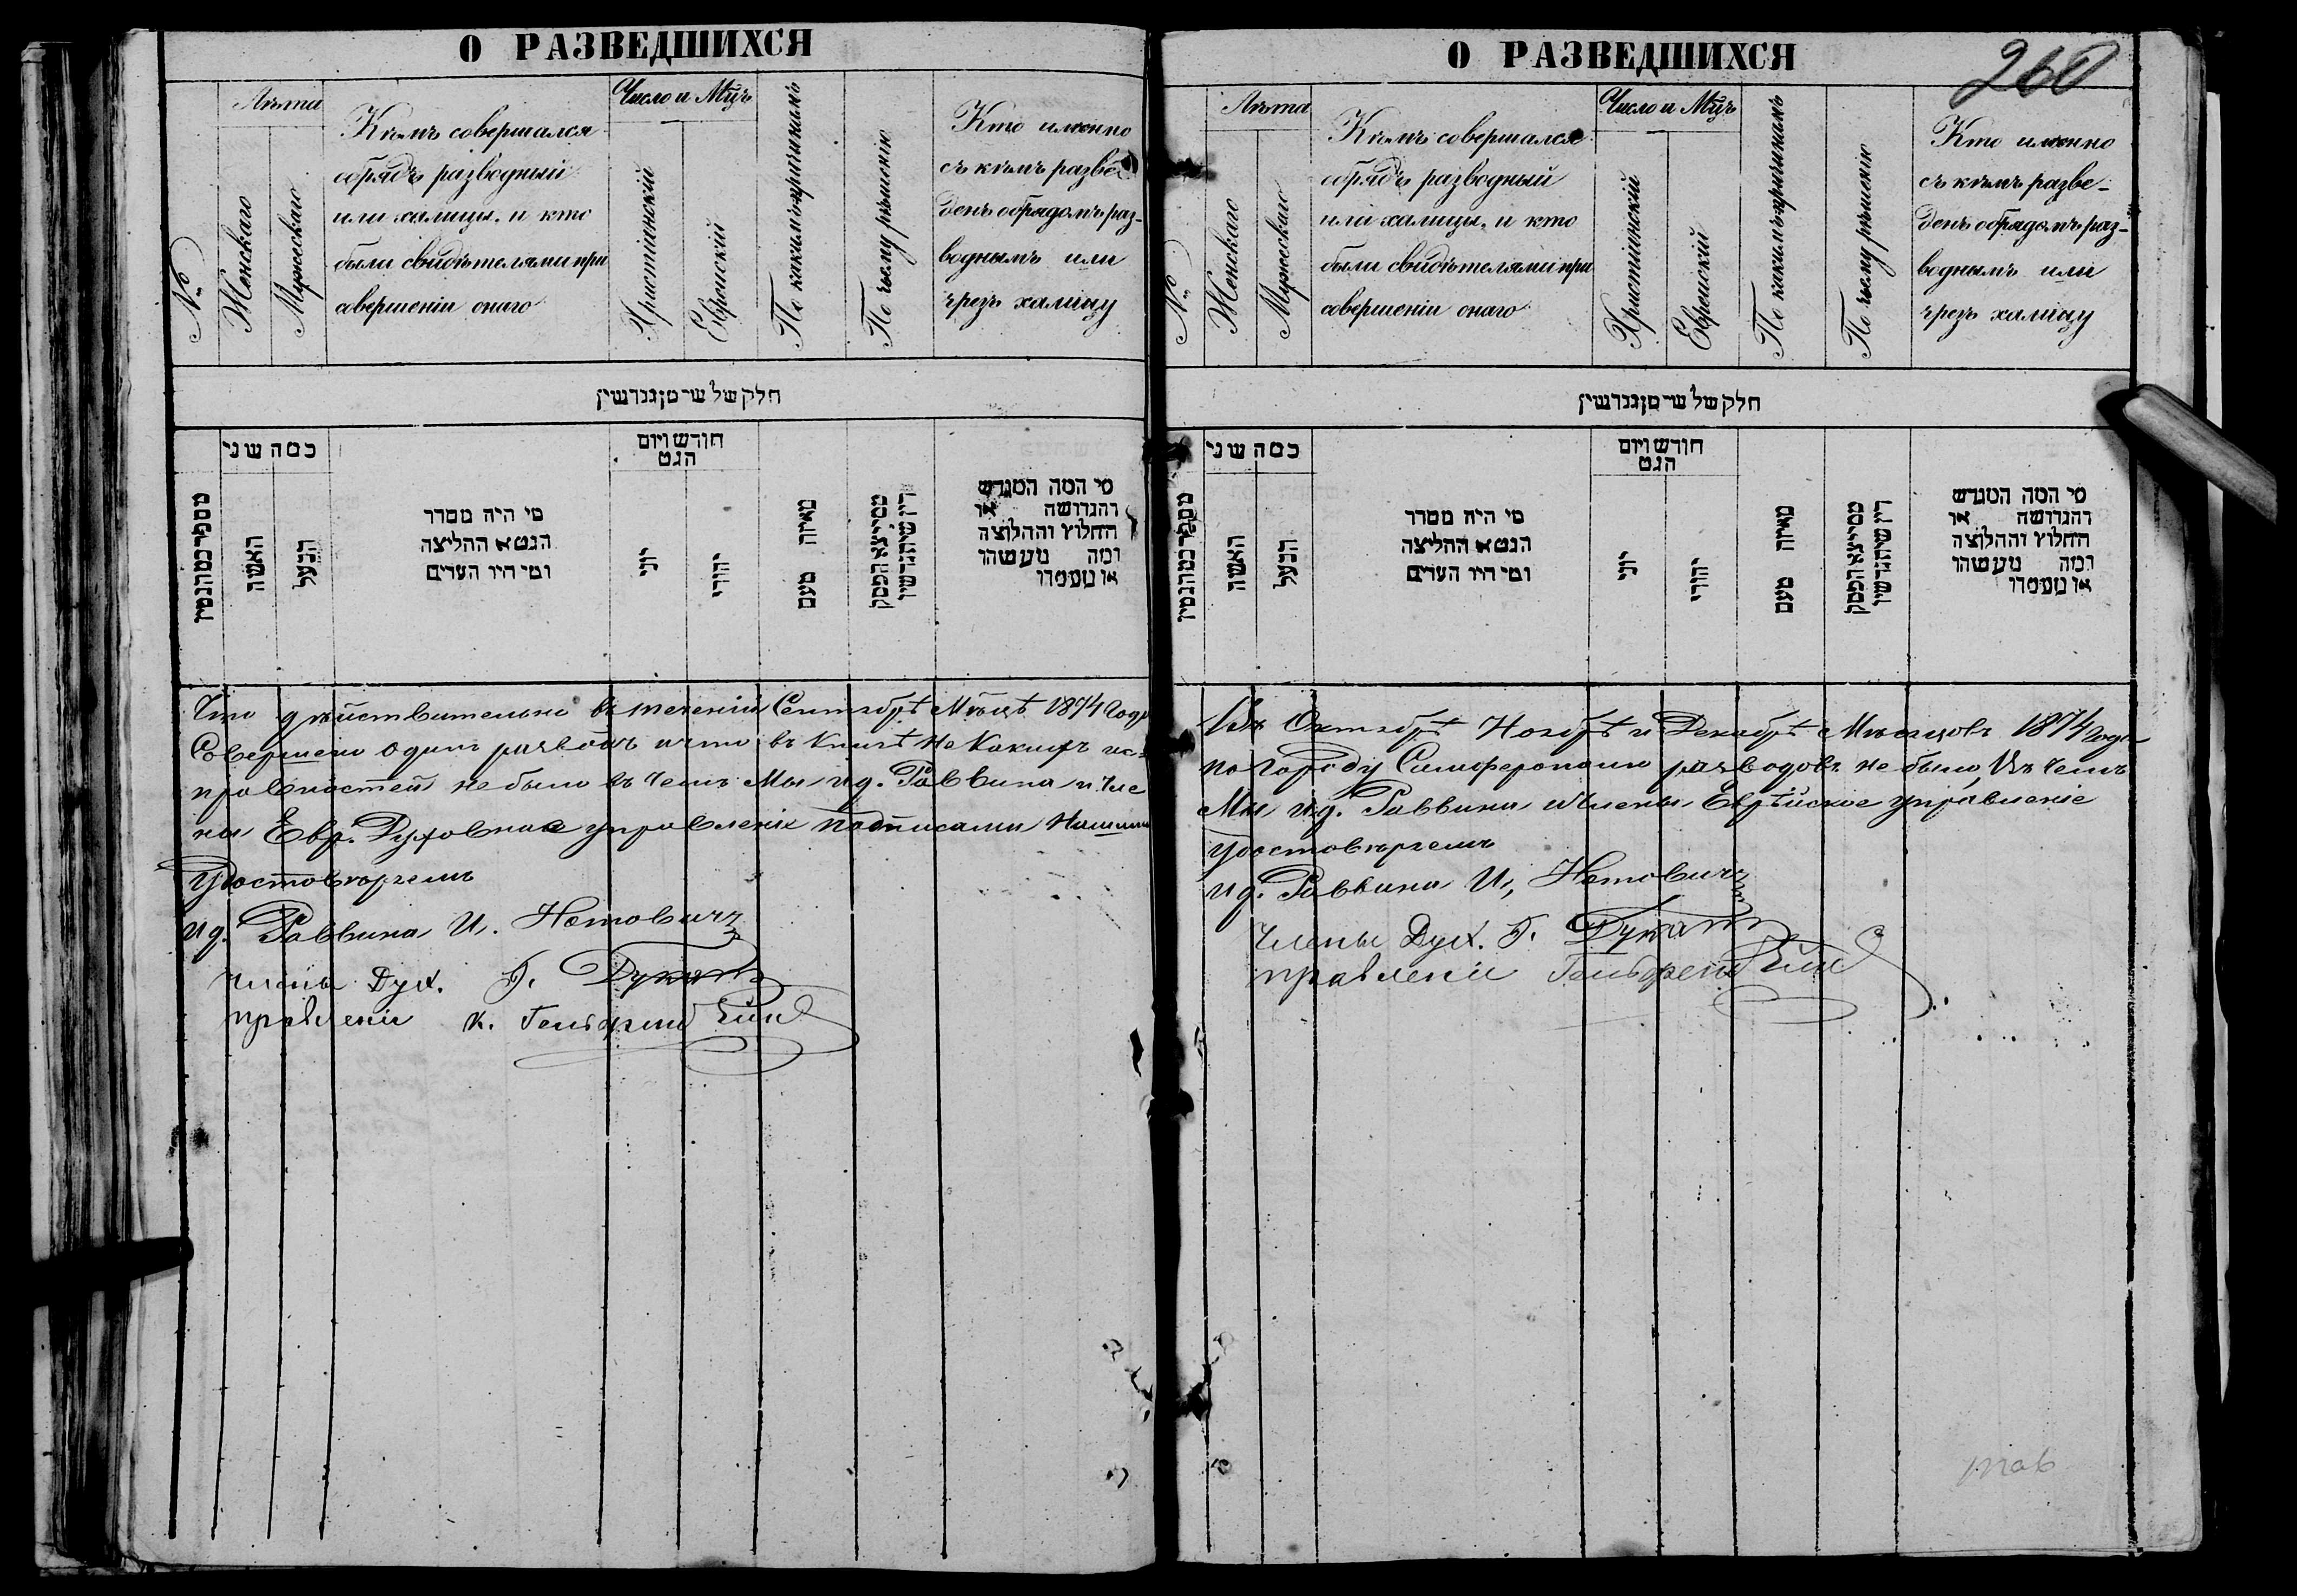 О РАЗВЕДШИХСЯ
№
Лѣта
Женскаго
Мужескаго
Кѣмъ совершался
обрядъ разводный
или халицы, и кто
были свидѣтелями при
совершеніи онаго
Число и Мцъ
Христіянскій
Еврейскій
По какимъ причинамъ
По чьему рѣшенію
Кто именно
съ кѣмъ разве-
денъ обрядомъ раз-
воднымъ или
чрезъ халицу
חלק של שׁ מן גנדשין
כמה שני
האשה
הבעל
מי היה מסדר
הגט א החליצה
ומי היו העדים
חודש ויום
הגט
יוני
יהודי
מאיזה טעם
מי המה המגרש
והגרושה או
החלוץ והחלוצה
ומה מעשהו
או מעמדו
Что дѣйствительно въ теченіи Сентябрѣ Мѣсцѣ 1874 Года
Совершено одинъ разводъ и что въ книгѣ не какихъ ис-
правностей не было въ чемъ Мы ид. Раввина и Чле
ны Евр. Духовное управленіе подписами Нашими
Удостовѣряемъ
ид. Раввина И. Нотовичъ
Члены Дух. Г. Дукатъ
правленіи К. Гельфенд
О РАЗВЕДШИХСЯ
260
№
Лѣта
Женскаго
Мужескаго
Кѣмъ совершался
обрядъ разводный
или халицы, и кто
были свидѣтелями при
совершеніи онаго
Число и Мцъ
Христіянскій
Еврейскій
По какимъ причинамъ
По чьему рѣшенію
Кто именно
съ кѣмъ разве-
денъ обрядомъ раз-
воднымъ или
чрезъ халицу
כמה שני
האשה
הבעל
מי היה מסדר
הגט א החליצה
ומי היו העדים
חודש ויום
הגט
יוני
יהודי
מאיזה טעם
מי המה המגרש
והגרושה או
החלוץ והחלוצה
ומה מעשהו
או מעמדו
Въ Октябрѣ Ноябрѣ и Декабрѣ Мѣсяцовъ 1874 года
по городу Симферополю разводовъ не было, Въ чемъ
Мы ид. Раввина и Члены Еврѣйское управленіе
Удостовѣряемъ
ид. Раввина И, Нотовичъ
Члены Дух. Г. Дукатъ
правленіи Гельфенд